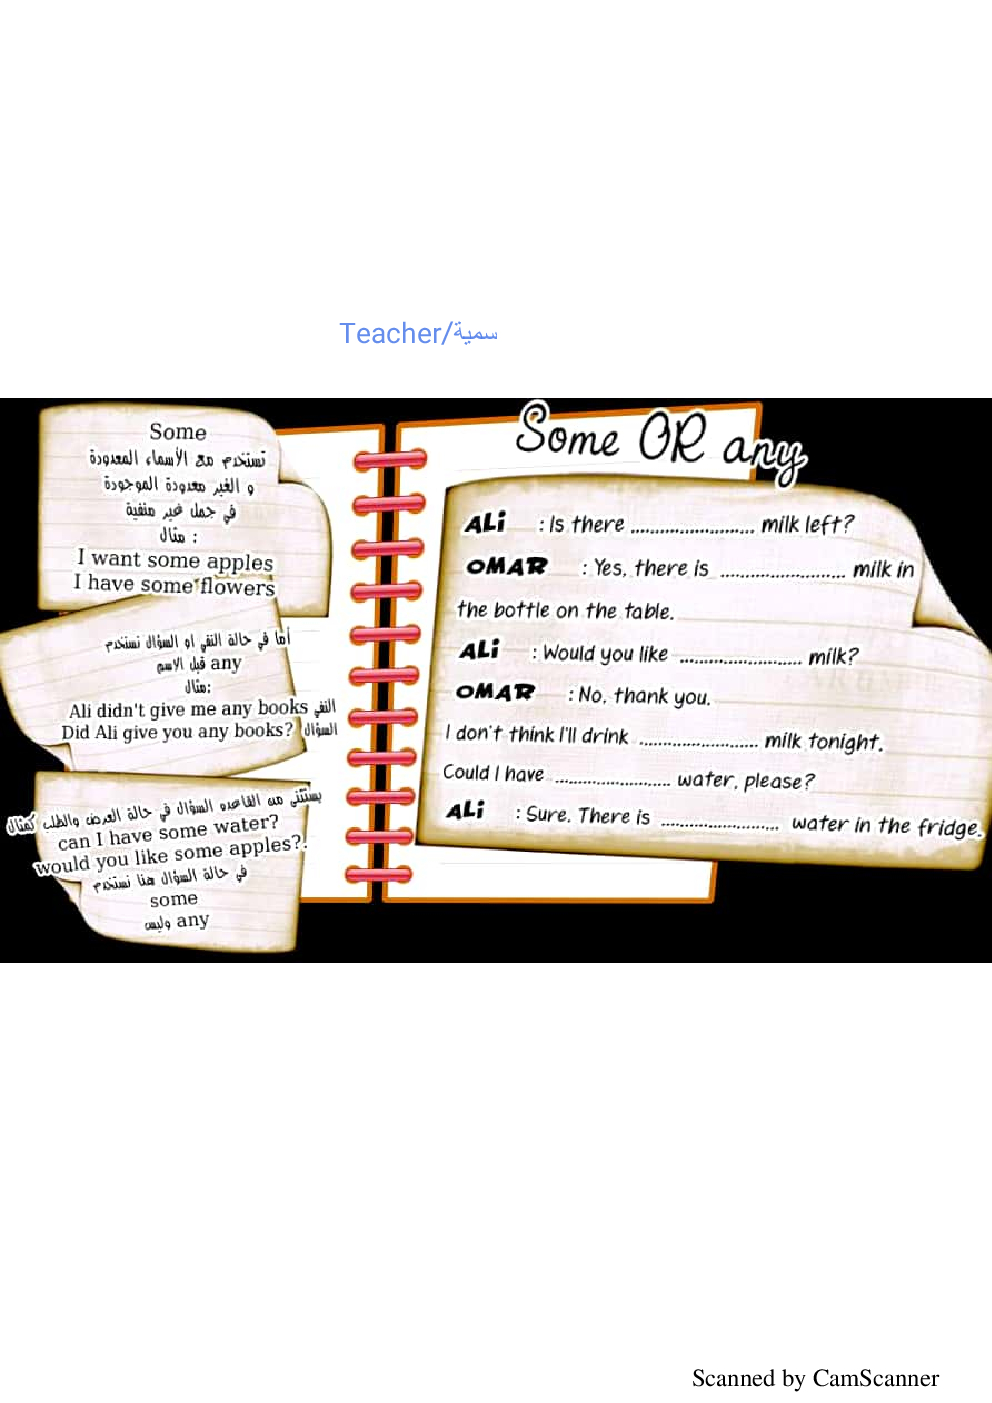 Teacher/سمية
Some
تستخدم مع الأسماء المعدودة
و الغير معدودة الموجودة
في جمل غير منفية
مثال :
I want some apples
I have some flowers
أما في حالة النفي او السؤال نستخدم
any قبل الاسم
مثال:
Ali didn't give me any books النفي
Did Ali give you any books? السؤال
يستثنى من القاعدو السؤال في حالة العرض والطلب كمثال
can I have some water?
would you like some apples?!
في حالة السؤال هنا نستخدم
some
وليس any
Some OR any
ALi : Is there ......................... milk left?
OMAR : Yes, there is ......................... milk in
the bottle on the table.
ALi : Would you like ......................... milk?
OMAR : No, thank you.
I don't think I'll drink ......................... milk tonight.
Could I have ......................... water, please?
ALi : Sure. There is ......................... water in the fridge.
Scanned by CamScanner